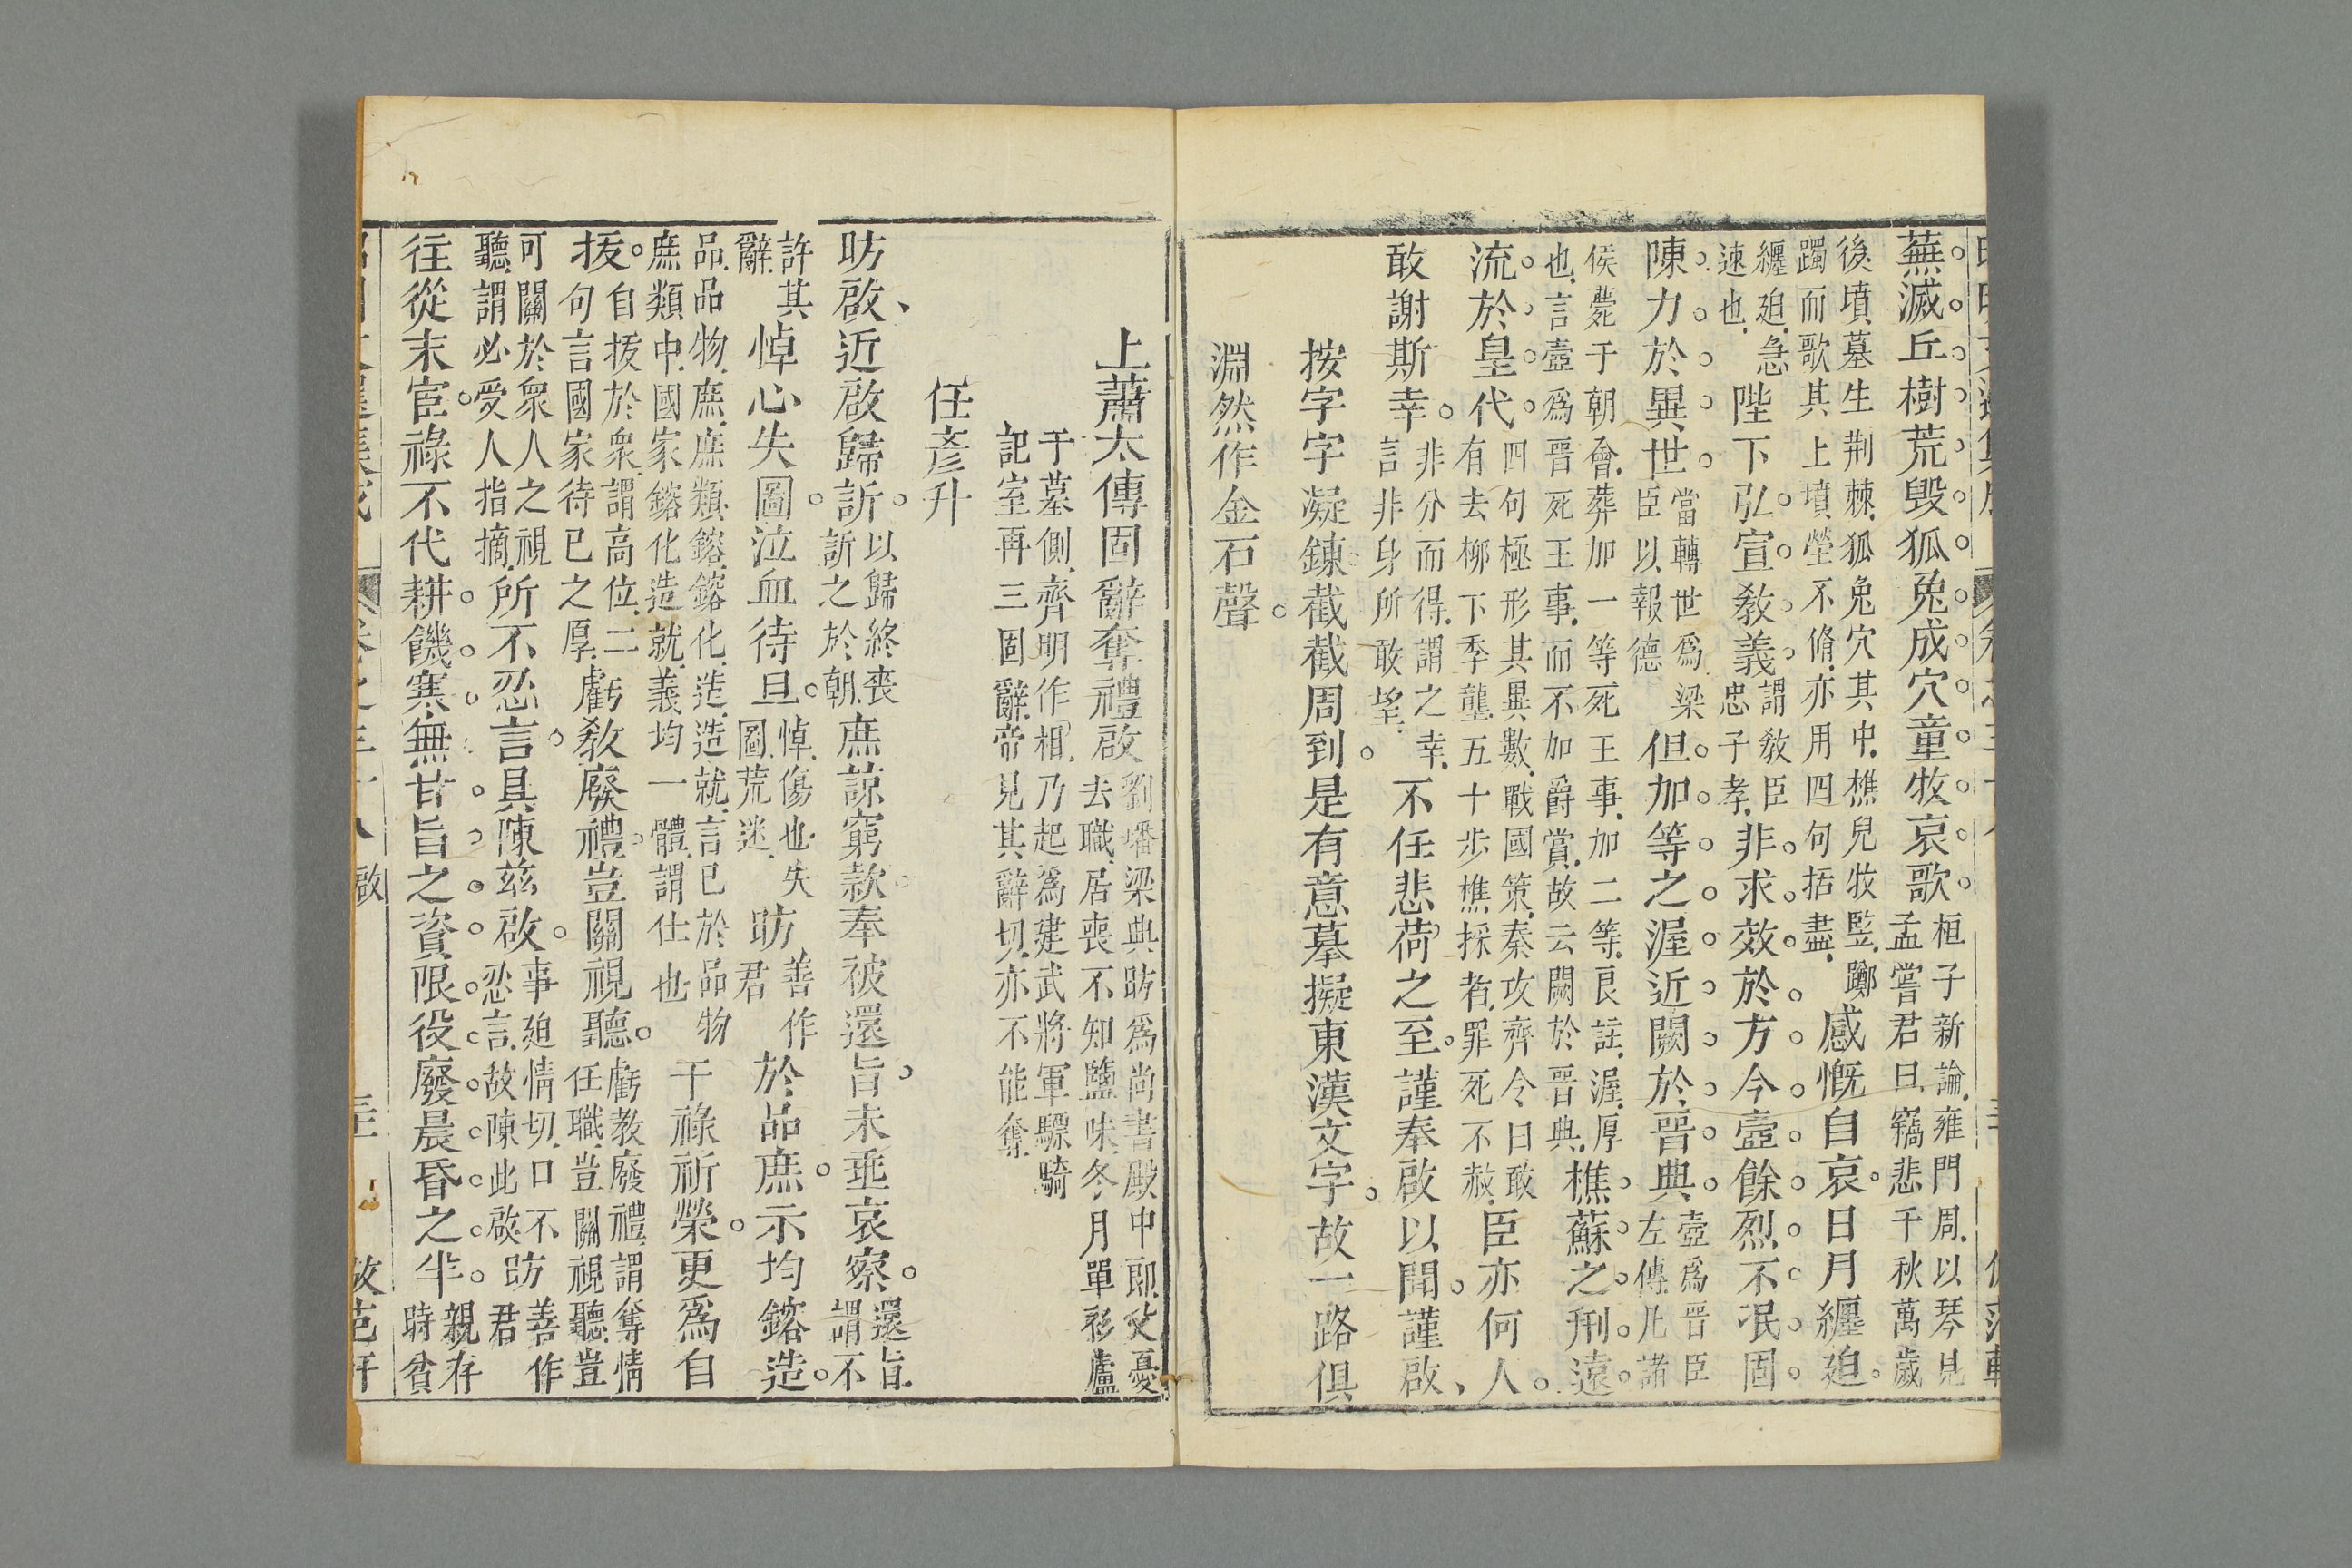 蕪滅丘樹荒毀狐兔成穴童牧哀歌桓子新論雍門周以琴見孟嘗君曰竊悲千秋萬歲
後墳墓生荆棘狐兔穴其中樵兒牧監躑躅而歌其上墳塋不脩亦用四句括盡感慨自哀日月纏廹
纏廹急速也陛下弘宣敎義謂敎臣忠子孝非求效於方今壼餘烈不泯固
陳力於異世當轉世爲梁臣以報德但加等之渥近闕於晉典壼爲晉臣左傳凡諸
侯薨于朝會葬加一等死王事加二等良註渥厚也言壼爲晉死王事而不加爵賞故云闕於晉典樵蘇之刑遠
流於皇代四句極形其異數戰國策秦攻齊令曰敢有去柳下季壟五十步樵採者罪死不赦臣亦何人
敢謝斯幸非分而得謂之幸言非身所敢望不任悲荷之至謹奉啟以聞謹啟
按字字凝鍊截截周到是有意摹擬東漢文字故一路俱
淵然作金石聲
上蕭太傅固辭奪禮啟劉璠梁典昉爲尚書殿中郎父憂去職居喪不知鹽味冬月單衫廬
于墓側齊明作相乃起爲建武將軍驃騎記室再三固辭帝見其辭切亦不能奪
任彥升
昉啟近啟歸訴以歸終喪訴之於朝庶諒窮款奉被還旨未垂哀察還旨謂不
許其辭悼心失圖泣血待旦悼傷也失圖荒迷昉善作君於品庶示均鎔造
品品物庶庶類鎔鎔化造造就言已於品物庶類中國家鎔化造就義均一體謂仕也干祿祈榮更爲自
拔自拔於衆謂高位二句言國家待已之厚虧敎廢禮豈關視聽虧敎廢禮謂奪情任職豈關視聽豈
可關於衆人之視聽謂必受人指摘所不忍言具陳茲啟事廹情切口不忍言故陳此啟昉善作君
往從末宦祿不代耕饑寒無甘旨之資限役廢晨昏之半親存時貧